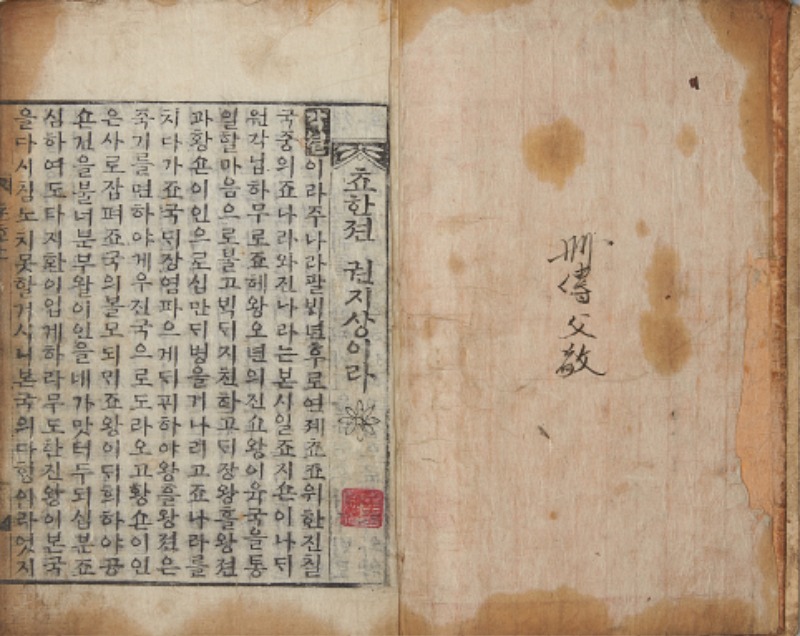 쵸한젼 권지상이라
이라주나라팔뵉년후로연졔쵸죠위한진칠
국중의죠나라와진나라는본시일죠지손이나뒤
원각님하무로죠혜왕오년의진쇼왕이육국을통
일할마음으로불고빅뒤지친하고뒤장왕흘왕젼
과황손이인으로십만뒤병을거나려고죠나라를
치다가죠국뒤장염파으게뒤픠하야왕흘왕젼은
죽기를면하야게우진국으로도라오고황손이인
은사로잡펴죠국의볼모되민죠왕이뒤희하야공
손건을불너분부왈이인을네가맛터두되십분죠
심하여도타지환이입게하라무도한진왕이본국
을다시침노치못할거시니본국의다행이라엇지